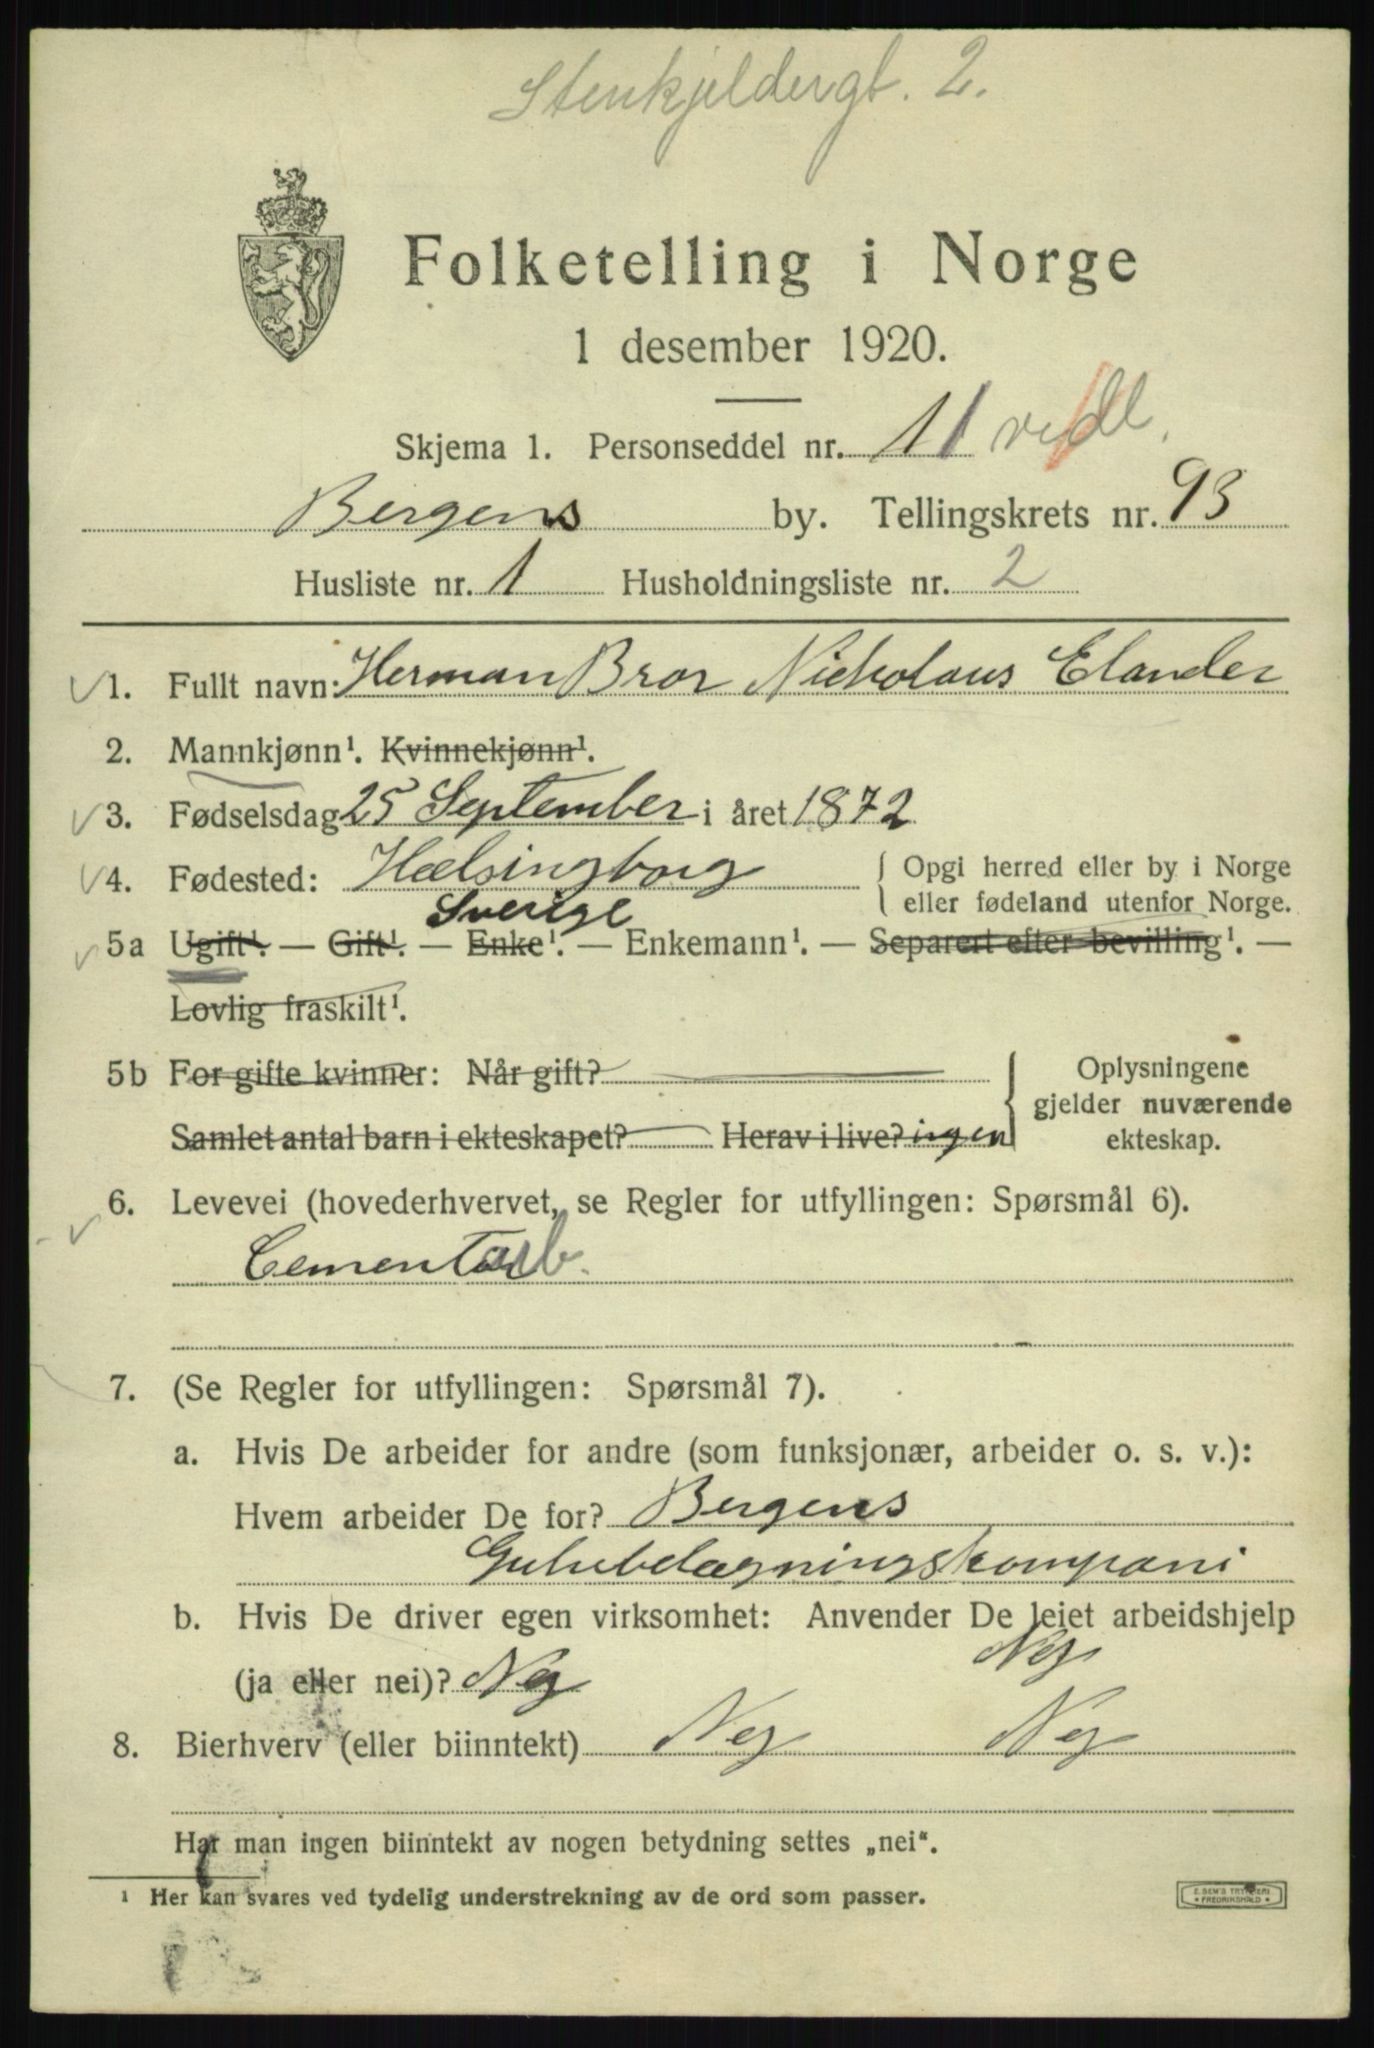 Stenkjeldergt. 2.
Folketelling i Norge
1 desember 1920.
Skjema 1. Personseddel nr. 11 vedl.
Bergens by. Tellingskrets nr. 93
Husliste nr. 1 Husholdningsliste nr. 2
1. Fullt navn: Herman Bror Nickolaus Elander
2. Mannkjønn¹. Kvinnekjønn¹.
3. Fødselsdag 25 September i året 1872
4. Fødested: Hælsingborg { Opgi herred eller by i Norge
Sverige eller fødeland utenfor Norge.
5a Ugift¹. — Gift¹. — Enke¹. — Enkemann¹. — Separert efter bevilling¹. —
Lovlig fraskilt¹.
5b For gifte kvinner: Når gift? Oplysningene
gjelder nuværende
Samlet antal barn i ekteskapet? Herav i live? ingen ekteskap.
6. Levevei (hovederhvervet, se Regler for utfyllingen: Spørsmål 6).
Cementarb.
7. (Se Regler for utfyllingen: Spørsmål 7).
a. Hvis De arbeider for andre (som funksjonær, arbeider o. s. v.):
Hvem arbeider De for? Bergens
Gulvbelægningskompani
b. Hvis De driver egen virksomhet: Anvender De leiet arbeidshjelp
Nej
(ja eller nei)? Nej
8. Bierhverv (eller biinntekt) Nej Nej
Har man ingen biinntekt av nogen betydning settes „nei“.
¹ Her kan svares ved tydelig understrekning av de ord som passer.
E. SEM'S TRYKKERI
FREDRIKSHALD